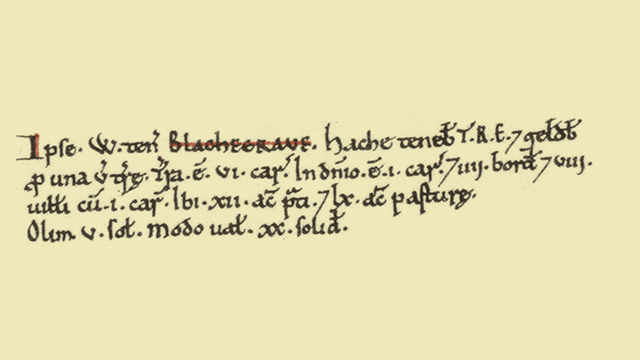 Ipse .W. teñ BLACHEGRAVE. Hache teneb̄ T.R.E. ⁊ geldb̄
ꝓ una v̄ træ. T̃ra .ē. vi. car̃. In dñio .ē. i. car̃. ⁊ iiij. bord̄ ⁊ viii.
uilli cū .i. car̃. Ibi .xii. ac̃ p̃ti. ⁊ lx. ac̃ pasturæ.
Olim .v. sol̄. Modo ual̄ .xx. solid̄.